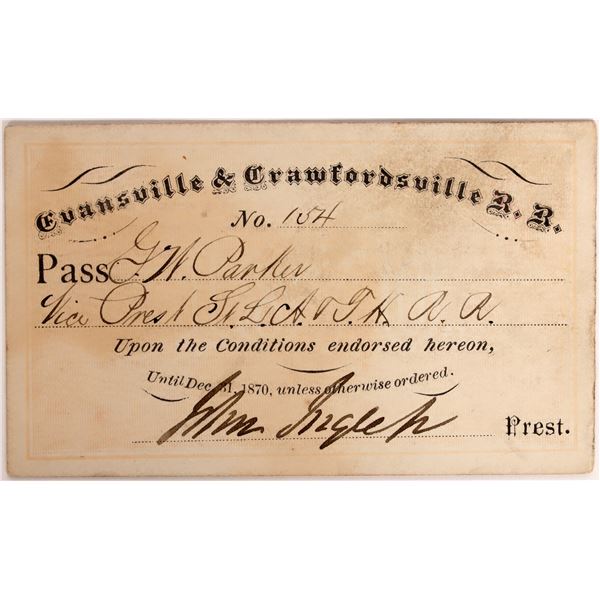 Evansville & Crawfordsville R. R.
No. 154
Pass G. W. Parker
Vice Prest St. L. A & T. H. R. R.
Upon the Conditions endorsed hereon,
Until Dec. 31, 1870, unless otherwise ordered.
John Ingle Jr Prest.